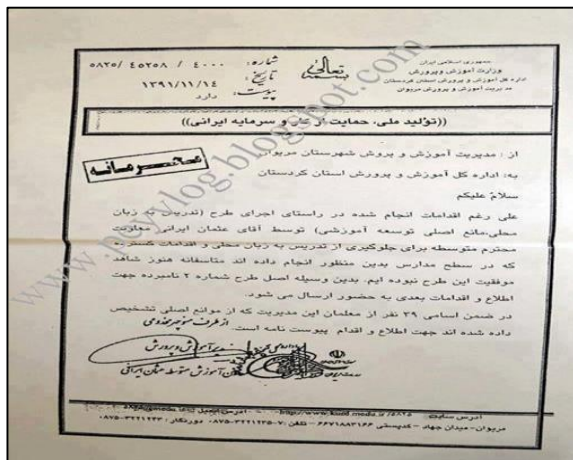 جمهوری اسلامی ایران
وزارت آموزش و پرورش
اداره کل آموزش و پرورش استان کردستان
مدیریت آموزش و پرورش مریوان
بسمه تعالی
شماره: ۴۰۰۰ / ۴۵۲۵۸ /۵۸۲۵
تاریخ: ۱۳۹۱/۱۱/۱۴
پیوست: دارد
((تولید ملی، حمایت از کار و سرمایه ایرانی))
محرمانه
از : مدیریت آموزش و پروش شهرستان مریوان
به: اداره کل آموزش و پرورش استان کردستان
سلامٌ علیکم
علی رغم اقدامات انجام شده در راستای اجرای طرح (تدریس به زبان
محلی،مانع اصلی توسعه آموزشی) توسط آقای عثمان ایرانی معاونت
محترم متوسطه برای جلوگیری از تدریس به زبان محلی و اقدامات گسترده
که در سطح مدارس بدین منظور انجام داده اند متاسفانه هنوز شاهد
موفقیت این طرح نبوده ایم. بدین وسیله اصل طرح شماره ۲ نامبرده جهت
اطلاع و اقدامات بعدی به حضور ارسال می شود.
در ضمن اسامی ۲۹ نفر از معلمان این مدیریت که از موانع اصلی تشخیص
داده شده اند جهت اطلاع و اقدام پیوست نامه است.
از طرف منوچهر مخدومی
مدیر آموزش و پرورش
معاون آموزش متوسطه عثمان ایرانی
آدرس سایت http://www.kurd.medu.ir/5825 آدرس ایمیل
مریوان-میدان جهاد - کدپستی ۶۶۷۱۸۸۳۱۶۶ -تلفن:۷-۰۸۷۵-۳۲۲۱۲۳۵ دورنگار: ۰۸۷۵-۳۲۲۱۲۳۳
www.pyvvlog.blogspot.com